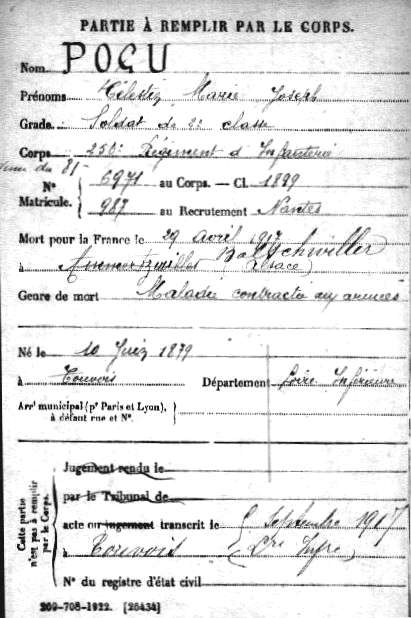 PARTIE À REMPLIR PAR LE CORPS.
Nom POGU
Prénoms Célestin Marie Joseph
Grade Soldat de 2e classe
Corps 250e Régiment d'Infanterie
venu du 81
N° Matricule. 6971 au Corps. — Cl. 1899
987 au Recrutement Nantes
Mort pour la France le 29 avril 1917
à Bälschwiller (Alsace)
Genre de mort Maladie contractée aux armées
Né le 10 Juin 1879
à Touvois Département Loire Inférieure
Arrt municipal (pr Paris et Lyon), à défaut rue et N°.
Cette partie n'est pas à remplir par le Corps.
Jugement rendu le
par le Tribunal de
acte ou jugement transcrit le Septembre 1917
à Touvois (Lre Infre)
N° du registre d'état civil
209-708-1922. [26434]